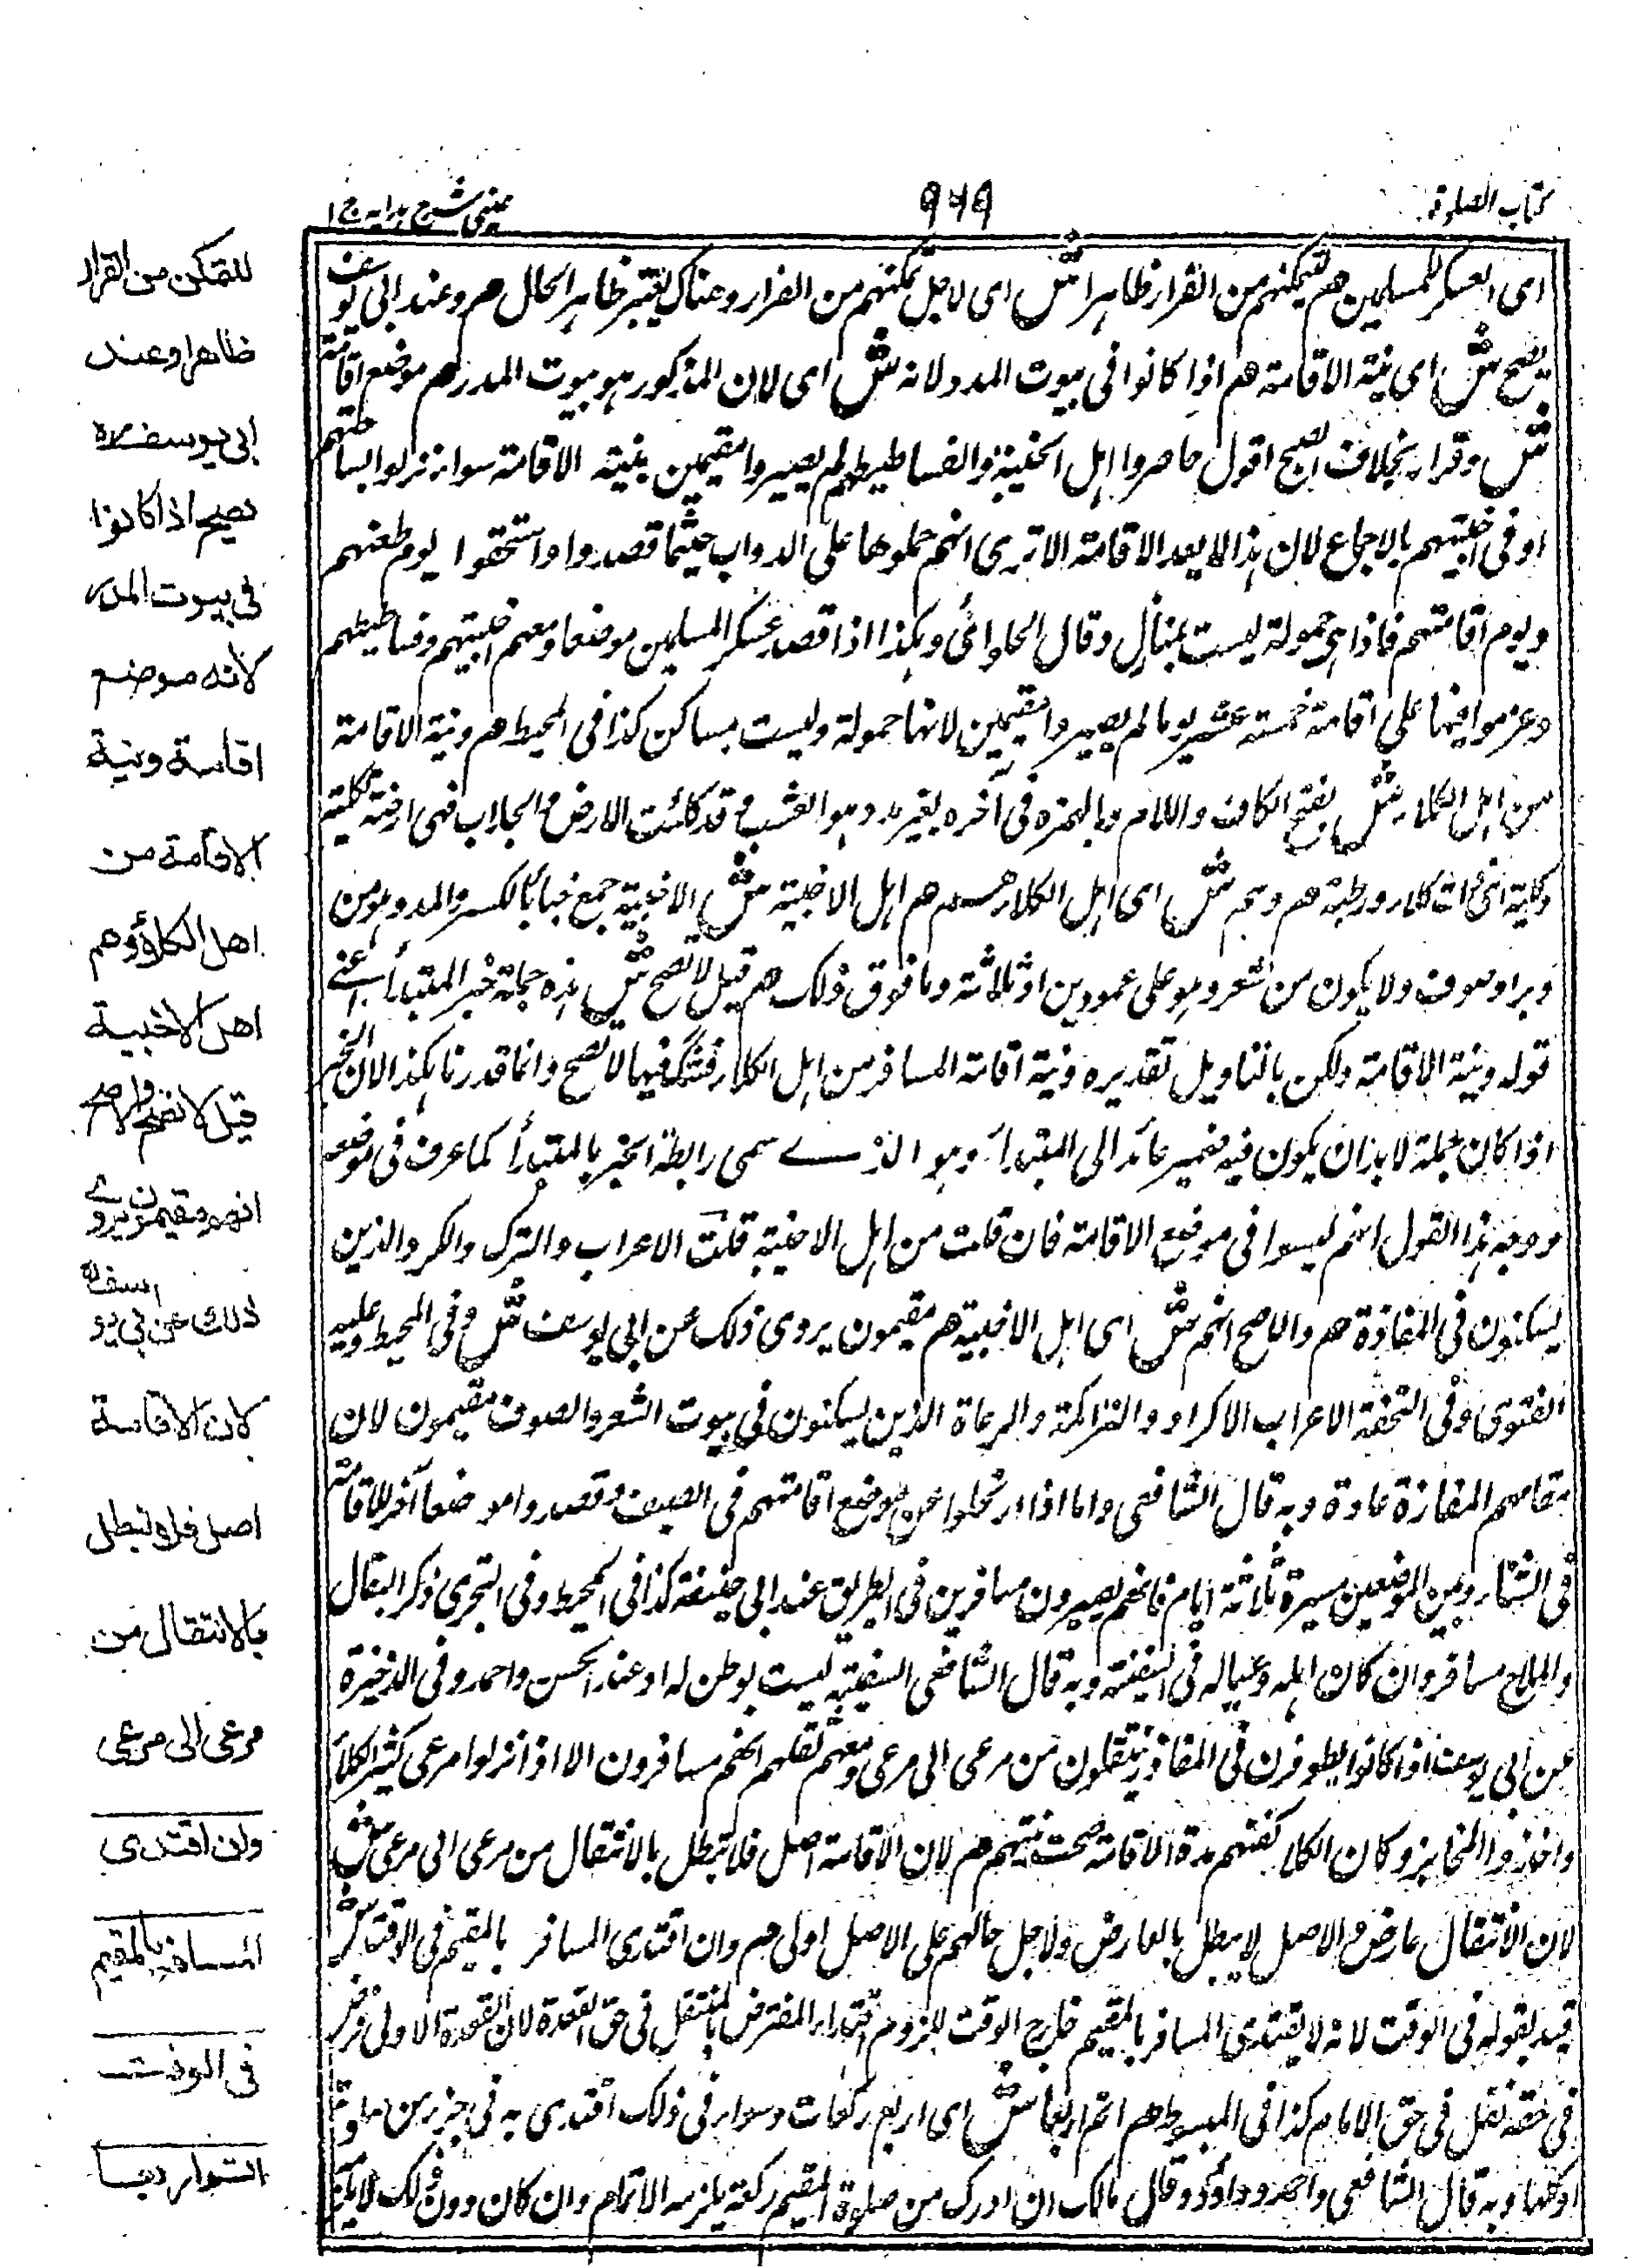 كتاب الصلوة
٩٦٩
عينى شرح هدايه ج ١
اى العسكر للمسلمين هم لتمكنهم من القرار ظاهرا ش اى لاجل تمكنهم من القرار وهناك يعتبر ظاهر الحال هم وعند ابى يوسف
يصح ش اى نية الاقامة هم اذا كانوا فى بيوت المدر لانه ش اى لان المذكور هو بيوت المدر هم موضع اقامة
ش وقرار بخلاف اقول حاصروا اهل الاخبية والفساطيط لم يصيروا مقيمين بنية الاقامة سواء نزلوا بساحتهم
او فى اخبيتهم بالاجماع لان هذا لا يعد الاقامة الا ترى انهم حملوها على الدواب حيثما قصدوا واستخفوا يوم ظعنهم
ويوم اقامتهم فاذا هى حمولة ليست بمنازل وقال الحلوائى وهكذا اذا قصد عسكر المسلمين موضعا ومعهم اخبيتهم وفساطيطهم
وعزموا فيها على اقامة خمسة عشر يوما لم يصيروا مقيمين لانها حمولة وليست بمساكن كذا فى المحيط هم ونية الاقامة
من اهل الكلاء ش بفتح الكاف واللام وبالهمزة فى آخره بغير مد وهو العشب وقد كلئت الارض فهى ارض مكلئة
وكلية اى ذات كلاء ورطبة هم وهم ش اى اهل الكلاء هم اهل الاخبية ش الاخبية جمع خباء بالكسر والمد وهو من
وبر او صوف ولا يكون من شعر وهو على عمودين او ثلاثة وما فوق ذلك هم قيل لا تصح ش هذه جملة خبر المبتدأ اعنى
قوله ونية الاقامة ولكن بالتاويل تقديره ونية اقامة المسافر من اهل الكلاء فيها لا تصح وانما قدرنا هكذا لان الخبر
اذا كان جملة لا بد ان يكون فيه ضمير عائد الى المبتدأ وهو الذى سمى رابطة الخبر بالمبتدأ كما عرف فى موضعه
ووجه هذا القول انهم ليسوا فى موضع الاقامة فان قلت من اهل الاخبية قلت الاعراب والترك والكرد الذين
يسكنون فى المفازة هم والاصح انهم ش اى اهل الاخبية هم مقيمون يروى ذلك عن ابى يوسف ش وفى المحيط وعليه
الفتوى وفى التحفة الاعراب الاكراد والتراكمة والرعاة الذين يسكنون فى بيوت الشعر والصوف مقيمون لان
مقامهم المفازة عادة وبه قال الشافعى واما اذا ارتحلوا عن موضع اقامتهم فى الصيف وقصدوا موضعا آخر للاقامة
فى الشتاء وبين الموضعين مسيرة ثلاثة ايام فانهم يصيرون مسافرين فى الطريق عند ابى حنيفة كذا فى المحيط وفى التجرى ذكر البقال
والملاح مسافر وان كان اهله وعياله فى السفينة وبه قال الشافعى السفينة ليست بوطن له او عند الحسن واحمد وفى الذخيرة
عن ابى يوسف اذا كانوا يطوفون فى المفاوز ينتقلون من مرعى الى مرعى ومعهم ثقلهم انهم مسافرون الا اذا نزلوا مرعى كثير الكلاء
واتخذوا المخابز وكان الكلاء يكفيهم مدة الاقامة صحت نيتهم هم لان الاقامة اصل فلا تبطل بالانتقال من مرعى الى مرعى ش
لان الانتقال عارض والاصل لا يبطل بالعارض ولاجل حالهم على الاصل اولى هم وان اقتدى المسافر بالمقيم فى الوقت ش
قيد بقوله فى الوقت لانه لا يقتدى المسافر بالمقيم خارج الوقت للزوم اقتداء المفترض بالمتنفل فى حق القعدة لان القعدة الاولى فرض
فى حقه نفل فى حق الامام كذا فى المبسوط هم اتم اربعا ش اى اربع ركعات وسواء فى ذلك اقتدى به فى جزء من صلوته
او كلها وبه قال الشافعى واحمد وداؤد وقال مالك ان ادرك من صلوة المقيم ركعة يلزمه الاتمام وان كان دون ذلك لا يلزمه
للتمكن من القرار
ظاهرا وعند
ابى يوسف
يصح اذا كانوا
فى بيوت المدر
لانه موضع
اقامة ونية
الاقامة من
اهل الكلأ وهم
اهل الاخبية
قيل لا تصح والاصح
انهم مقيمون يروى
ذلك عن ابى يوسف
لان الاقامة
اصل فلا تبطل
بالانتقال من
مرعى الى مرعى
وان اقتدى
المسافر بالمقيم
فى الوقت
اتم اربعا